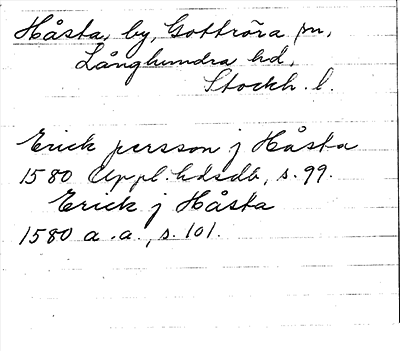 Håsta, by, Gottröra sn,
Långhundra hd,
Stockh. l.
Erick persson j Håsta
1580 Uppl. hdsdb, s. 99.
Erick j Håsta
1580 a. a., s. 101.